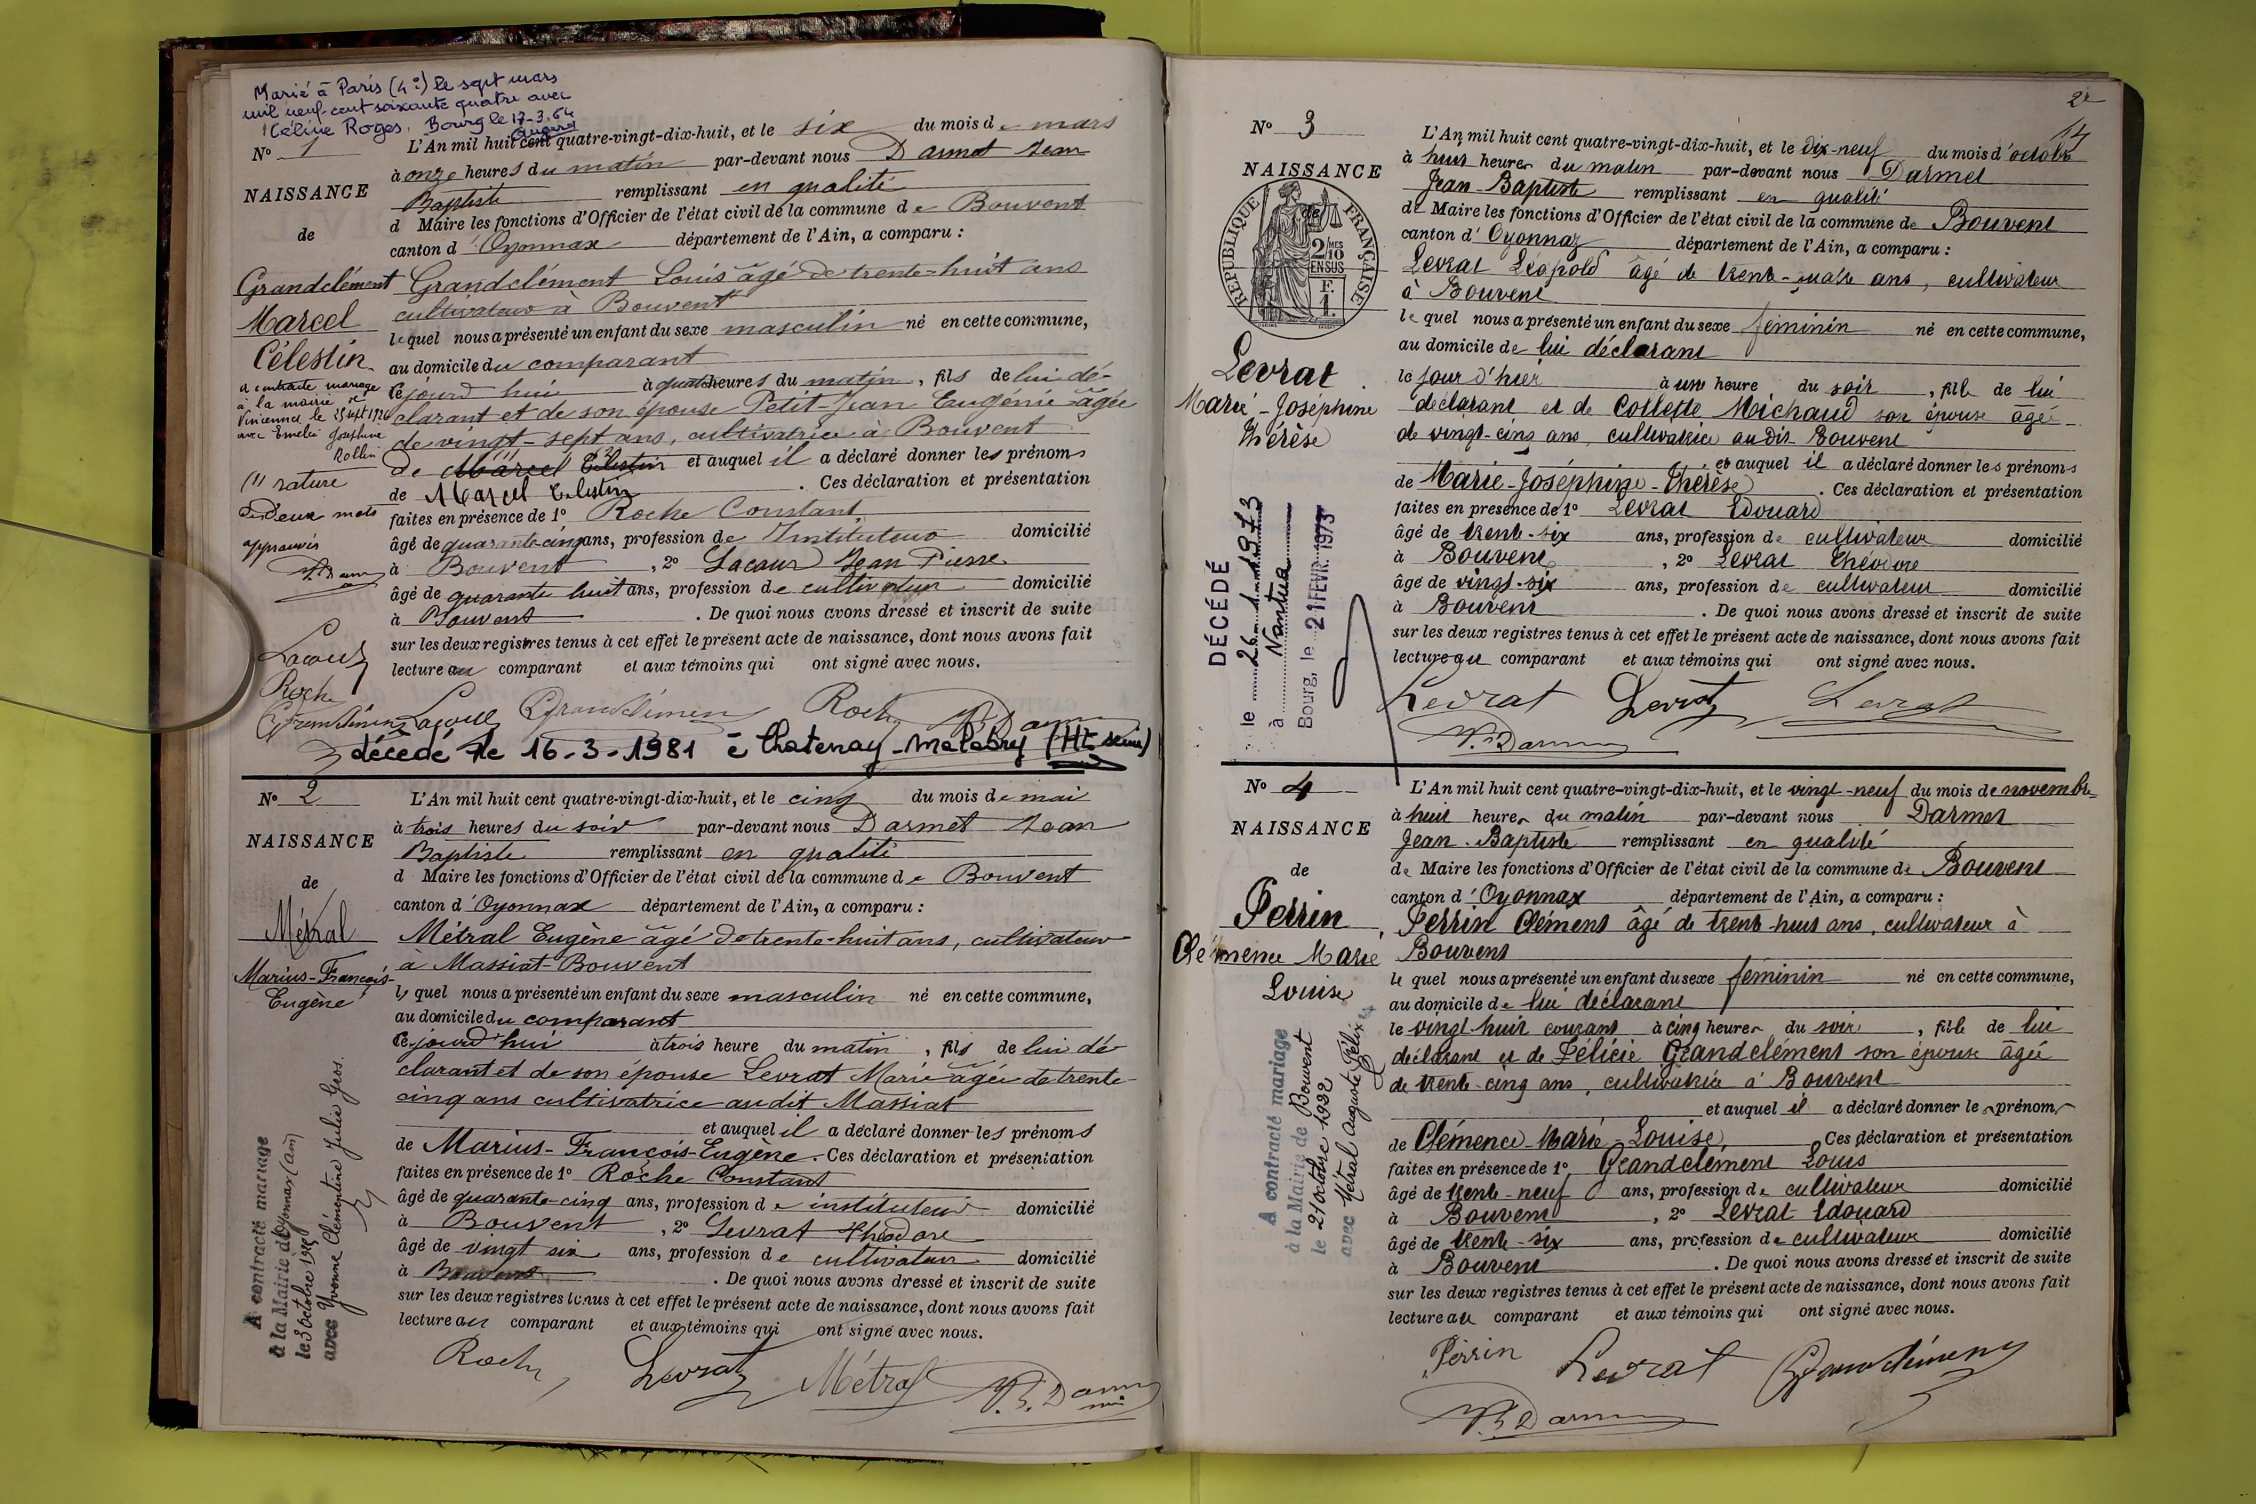 Marié à Paris (4e) le sept mars
mil neuf-cent soixante quatre avec
Céline Roges. Bourg le 17-3.64
No 1
NAISSANCE
de
Grandclément
Marcel
Célestin
a contracté mariage
à la mairie de
Vincennes le 25 sept 1926
avec Emelie Joséphine
Rollin
rature
de deux mots
approuvés
Lacour
Roche
Grandclément
L'An mil huit cent quatre-vingt-dix-huit, et le six du mois de mars
à onze heures du matin par-devant nous Darmet Jean
Baptiste remplissant en qualité
d Maire les fonctions d'Officier de l'état civil de la commune de Bouvent
canton d'Oyonnax département de l'Ain, a comparu :
Grandclément Louis âgé de trente-huit ans
cultivateur à Bouvent
lequel nous a présenté un enfant du sexe masculin né en cette commune,
au domicile du comparant
Cejourd'hui à quatre heures du matin, fils de lui dé-
clarant et de son épouse Petit-Jean Eugénie âgée
de vingt-sept ans, cultivatrice à Bouvent
de Marcel Célestin et auquel il a déclaré donner les prénoms
de Marcel Célestin. Ces déclaration et présentation
faites en présence de 1o Roche Constant
âgé de quarante-cinq ans, profession de Instituteur domicilié
à Bouvent, 2o Lacour Jean Pierre
âgé de quarante huit ans, profession de cultivateur domicilié
à Bouvent. De quoi nous avons dressé et inscrit de suite
sur les deux registres tenus à cet effet le présent acte de naissance, dont nous avons fait
lecture au comparant et aux témoins qui ont signé avec nous.
Lacour Grandclément Roche
décédé le 16-3-1981 à Chatenay-Malabry (Ht seine)
No 2
NAISSANCE
de
Métral
Marius-François-
Eugène
A contracté mariage
à la Mairie d'Oyonnax (Ain)
le 3 octobre
avec Yvonne Clémentine Julie Gros.
L'An mil huit cent quatre-vingt-dix-huit, et le cinq du mois de mai
à trois heures du soir par-devant nous Darmet Jean
Baptiste remplissant en qualité
d Maire les fonctions d'Officier de l'état civil de la commune de Bouvent
canton d'Oyonnax département de l'Ain, a comparu :
Métral Eugène âgé de trente-huit ans, cultivateur
a Massiat-Bouvent
lequel nous a présenté un enfant du sexe masculin né en cette commune,
au domicile du comparant
Cejourd'hui à trois heure du matin, fils de lui dé-
clarant et de son épouse Levrat Marie âgée de trente-
cinq ans cultivatrice audit Massiat
et auquel il a déclaré donner les prénoms
de Marius-François-Eugène. Ces déclaration et présentation
faites en présence de 1o Roche Constant
âgé de quarante-cinq ans, profession de instituteur domicilié
à Bouvent, 2o Levrat Théodore
âgé de vingt six ans, profession de cultivateur domicilié
à Bouvent. De quoi nous avons dressé et inscrit de suite
sur les deux registres tenus à cet effet le présent acte de naissance, dont nous avons fait
lecture au comparant et aux témoins qui ont signé avec nous.
Roche Levrat Métral
2e
No 3
NAISSANCE
de
RÉPUBLIQUE FRANÇAISE
2/10MES
EN SUS
F.
1.
Levrat
Marie-Joséphine
Thérèse
DÉCÉDÉ
le 26.1.1973
à Nantua
Bourg, le 21 FEVR. 1973
L'An mil huit cent quatre-vingt-dix-huit, et le dix-neuf du mois d'octobre
à huit heures du matin par-devant nous Darmet
Jean-Baptiste remplissant en qualité
de Maire les fonctions d'Officier de l'état civil de la commune de Bouvent
canton d'Oyonnax département de l'Ain, a comparu :
Levrat Léopold âgé de trente-quatre ans, cultivateur
à Bouvent
lequel nous a présenté un enfant du sexe féminin né en cette commune,
au domicile de lui déclarant
le jour d'hier à une heure du soir, fille de lui
déclarant et de Collette Michaud son épouse âgée
de vingt-cinq ans, cultivatrice audit Bouvent
et auquel il a déclaré donner les prénoms
de Marie-Joséphine-Thérèse. Ces déclaration et présentation
faites en présence de 1o Levrat Edouard
âgé de trente-six ans, profession de cultivateur domicilié
à Bouvent, 2o Levrat Théodore
âgé de vingt-six ans, profession de cultivateur domicilié
à Bouvent. De quoi nous avons dressé et inscrit de suite
sur les deux registres tenus à cet effet le présent acte de naissance, dont nous avons fait
lecture au comparant et aux témoins qui ont signé avec nous.
Levrat Levrat Levrat
No 4
NAISSANCE
de
Perrin
Clémence Marie
Louise
A contracté mariage
à la Mairie de Bouvent
le 21 octobre 1922
avec Métral Auguste Félix
L'An mil huit cent quatre-vingt-dix-huit, et le vingt-neuf du mois de novembre
à huit heures du matin par-devant nous Darmet
Jean-Baptiste remplissant en qualité
de Maire les fonctions d'Officier de l'état civil de la commune de Bouvent
canton d'Oyonnax département de l'Ain, a comparu :
Perrin Clément âgé de trente-huit ans, cultivateur à
Bouvent
lequel nous a présenté un enfant du sexe féminin né en cette commune,
au domicile de lui déclarant
le vingt-huit courant à cinq heures du soir, fille de lui
déclarant et de Félicie Grandclément son épouse âgée
de trente-cinq ans, cultivatrice à Bouvent
et auquel il a déclaré donner les prénoms
de Clémence-Marie-Louise. Ces déclaration et présentation
faites en présence de 1o Grandclément Louis
âgé de trente-neuf ans, profession de cultivateur domicilié
à Bouvent, 2o Levrat Edouard
âgé de trente-six ans, profession de cultivateur domicilié
à Bouvent. De quoi nous avons dressé et inscrit de suite
sur les deux registres tenus à cet effet le présent acte de naissance, dont nous avons fait
lecture au comparant et aux témoins qui ont signé avec nous.
Perrin Levrat Grandclément